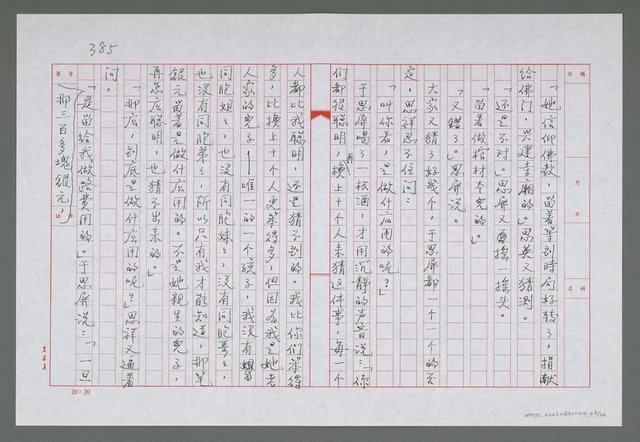 385
題目
月 日
姓名
「她信仰佛教，留着等到時局好轉了，捐献
給佛門，興建寺廟的。」思英又猜測。
「还是不对。」思屏又搖一搖头。
「留着做棺材本兒的。」
「又錯了。」思屏說。
大家又猜了好幾个，于思屏都一个一个的否
定，思祥忍不住問：
「叫你看，是做什庅用的呢？」
于思屏喝了一杯酒，才用沉静的声音說：「你
們都很聰明，再換上十个人来猜這件事，每一个
人都比我聰明，还是猜不到的。我比你們笨得
多，比換上十个人更笨得多，但因為我是她老
人家的兒子——唯一的一个孩子，我沒有
同胞姐姐，也沒有同胞妹妹，沒有同胞哥哥，
也沒有同胞弟弟，所以只有我才能知道，那笔
銀元留着是做什庅用的。不是她親生的兒子，
再怎庅聰明，也猜不出来的。」
「那庅，到底是做什庅用的呢？」思祥又逼着
問。
「是留給我做路費用的。」于思屏說：「一旦
那三百多塊銀元，
第 号
20×20
NMTL20060890024_23/26